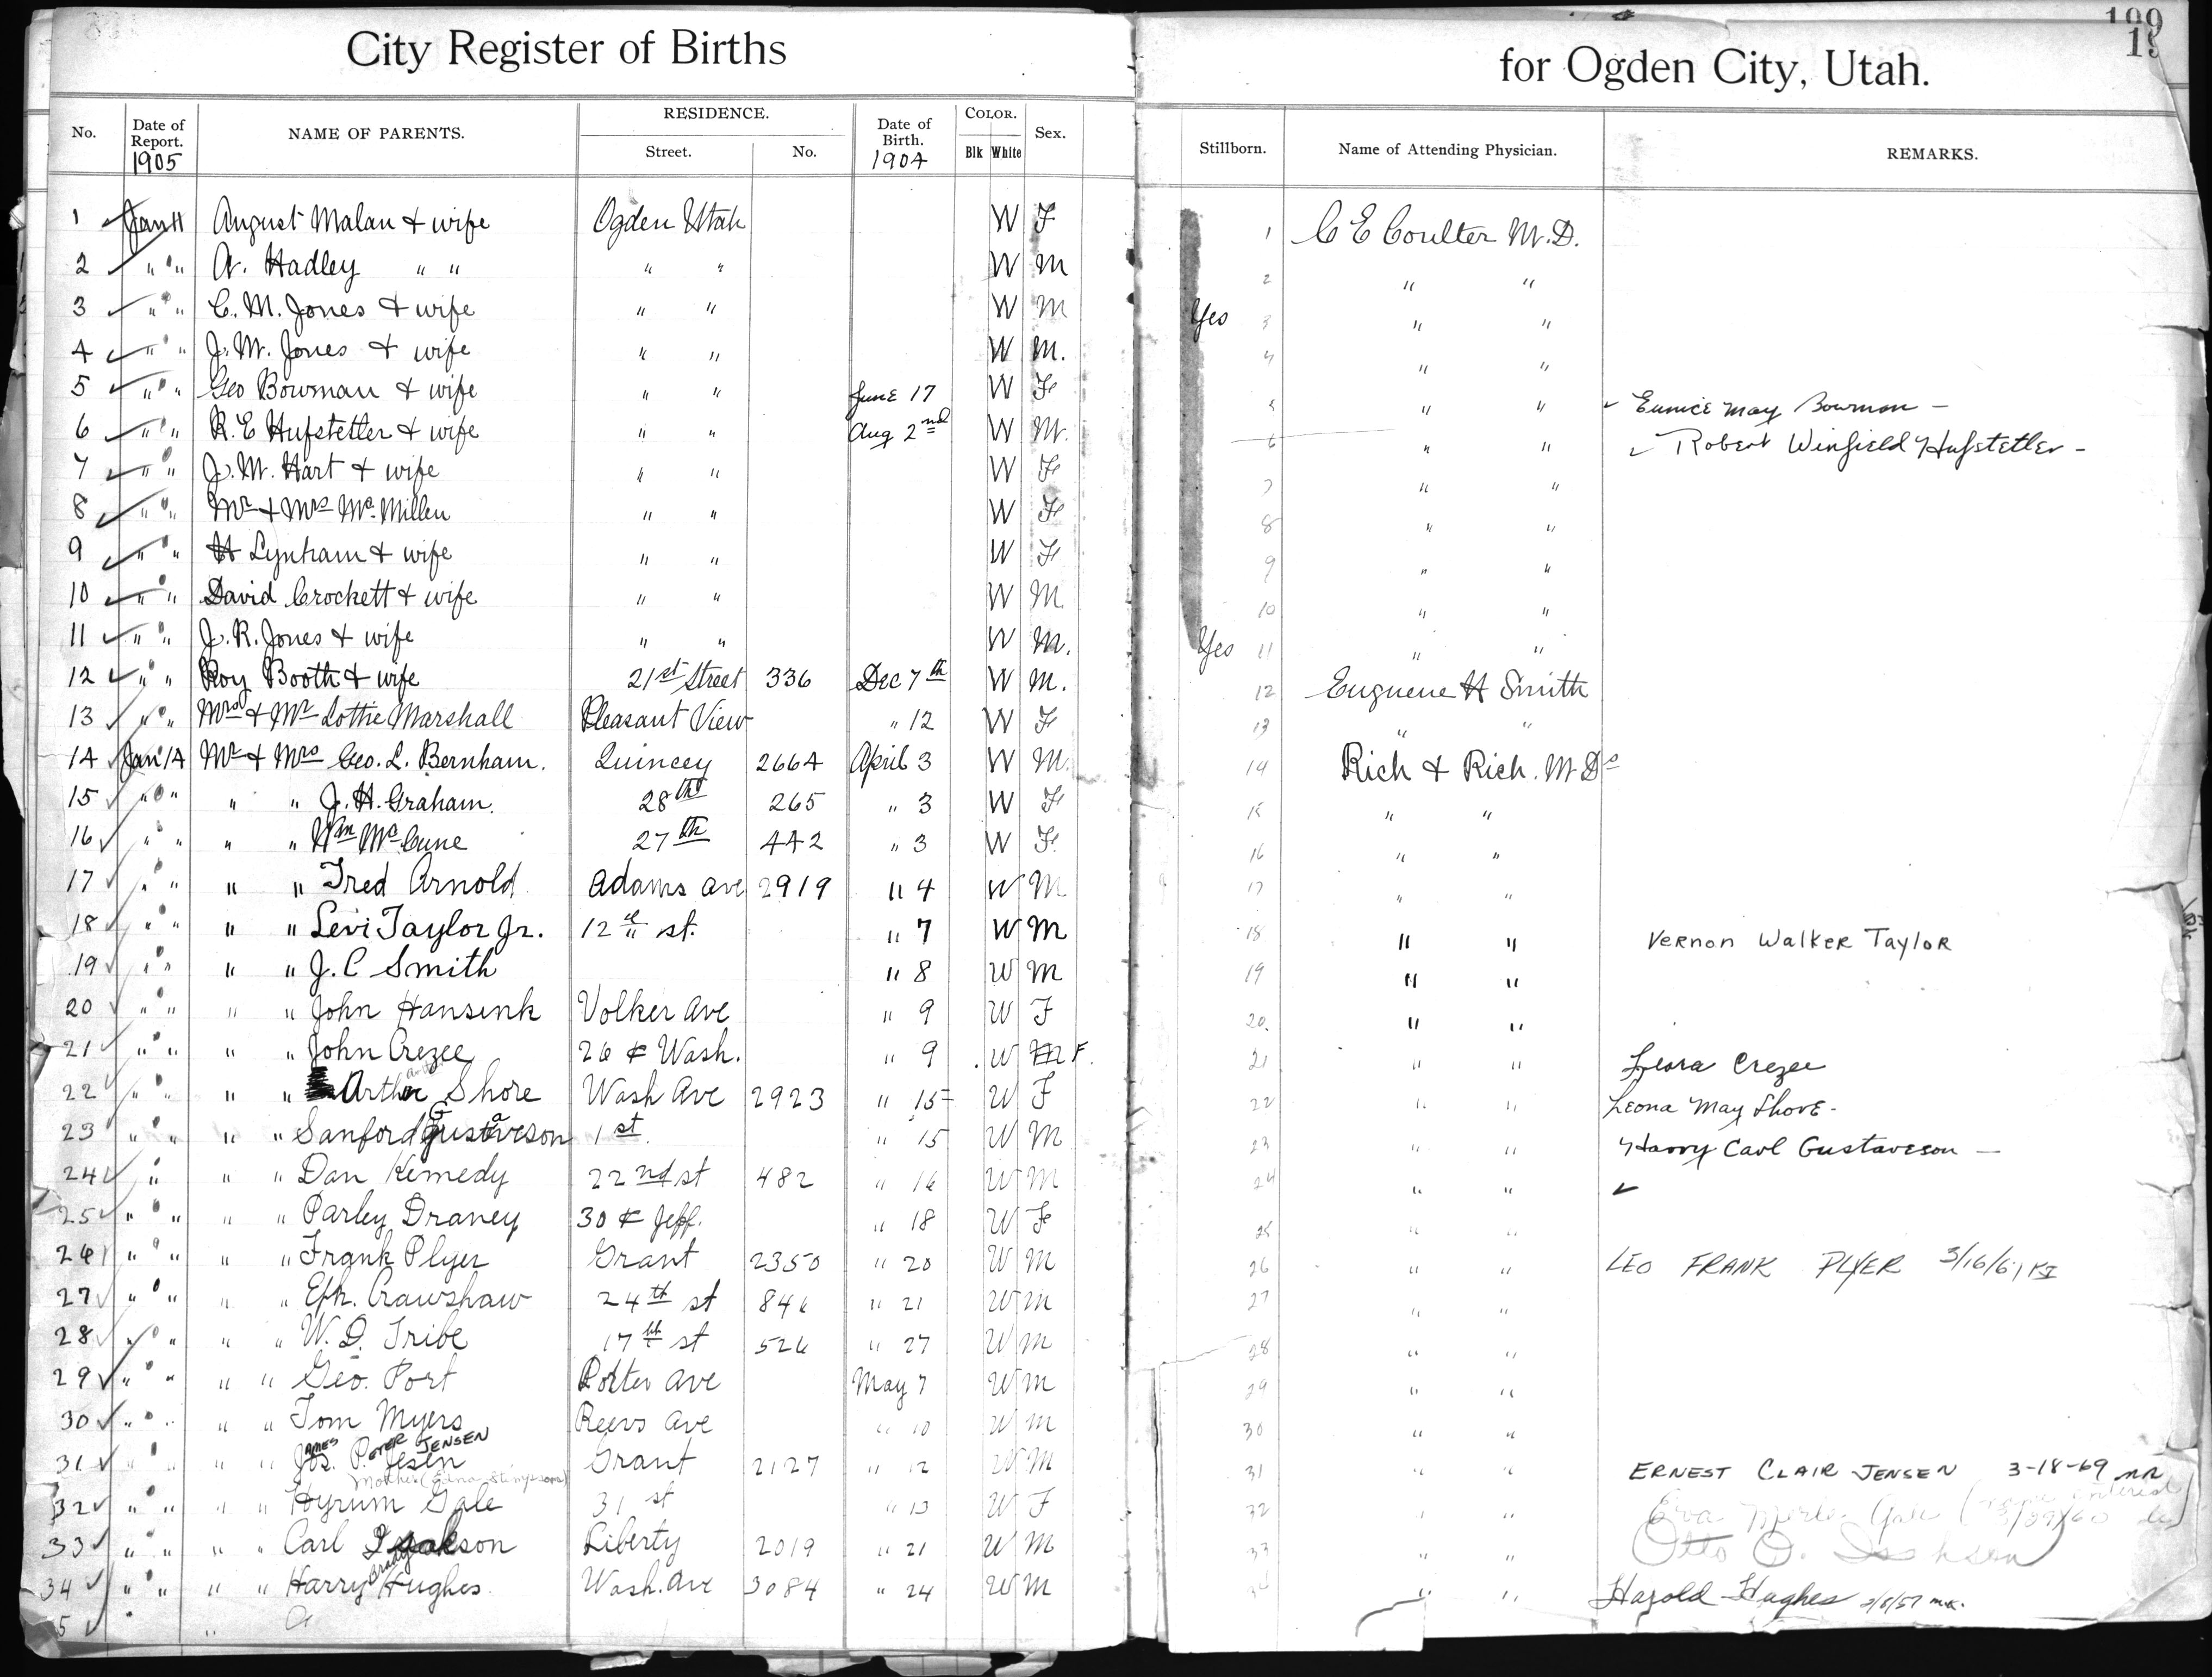 City Register of Births for Ogden City, Utah.
199
19
No. Date of Report. 1905 NAME OF PARENTS. RESIDENCE. Street. No. Date of Birth. 1904 COLOR. Blk White Sex. Stillborn. Name of Attending Physician. REMARKS.
1 Jan 11 August Malan & wife Ogden Utah W F 1 C E Coulter M.D.
2 " " " A. Hadley " " " " W M 2 " "
3 " " " C. M. Jones & wife " " W M Yes 3 " "
4 " " " J. M. Jones & wife " " W M. 4 " "
5 " " " Geo Bowman & wife " " June 17 W F 5 " " Eunice May Bowman -
6 " " " R. E Hufstetler & wife " " Aug 2nd W M. 6 " " Robert Winfield Hufstetler -
7 " " " J. W. Hart & wife " " W F 7 " "
8 " " " Mr & Mrs Mc Millen " " W F 8 " "
9 " " " H Lynham & wife " " W F 9 " "
10 " " " David Crockett & wife " " W M. 10 " "
11 " " " J. R. Jones & wife " " W M. Yes 11 " "
12 " " " Roy Booth & wife 21st Street 336 Dec 7th W M. 12 Euguene H Smith
13 " " " Mrs & Mr Lottie Marshall Pleasant View " 12 W F 13 " "
14 Jan 14 Mr & Mrs Geo. L. Bernham. Quincey 2664 April 3 W M. 14 Rich & Rich. M Ds
15 " " " " " J. H. Graham. 28th 265 " 3 W F 15 " "
16 " " " " " Wm McCune 27th 442 " 3 W F. 16 " "
17 " " " " " Fred Arnold. Adams ave 2919 " 4 W M 17 " "
18 " " " " " Levi Taylor Jr. 12th st. " 7 W M 18 " " Vernon Walker Taylor
19 " " " " " J. C Smith " 8 W M 19 " "
20 " " " " " John Hansink Volker ave " 9 W F 20. " "
21 " " " " " John Crezee 26 & Wash. " 9 W M F. 21 " " Leora Crezee
22 " " " " " Arthur Shore Wash Ave 2923 " 15 W F 22 " " Leona May Shore -
23 " " " " " Sanford Gustaveson 1st. " 15 W M 23 " " Harry Carl Gustaveson -
24 " " " Dan Kemedy 22nd st 482 " 16 W M 24 " "
25 " " " " " Parley Draney 30 & Jeff. " 18 W F 25 " "
26 " " " " " Frank Plyer Grant 2350 " 20 W M 26 " " LEO FRANK PLYER 3/16/61
27 " " " " " Eph. Crawshaw 24th st 846 " 21 W M 27 " "
28 " " " " " W. D. Tribe 17th st 526 " 27 W M 28 " "
29 " " " " " Geo. Port Porter ave May 7 W M 29 " "
30 " " " " " Tom Myers Reevs ave " 10 W M 30 " "
31 " " " " " JAMES PETER JENSEN Grant 2127 " 12 W M 31 " " ERNEST CLAIR JENSEN 3-18-69
Mother (Edna Stimpson)
32 " " " " " Hyrum Gale 31 st " 13 W F 32 " " Eva Merle Gale
33 " " " " " Carl Isakson Liberty 2019 " 21 W M 33 " " Otto O. Isakson
34 " " " " " Harry Brady Hughes. Wash. Ave 3084 " 24 W M " " Harold Hughes 2/8/57
5 "